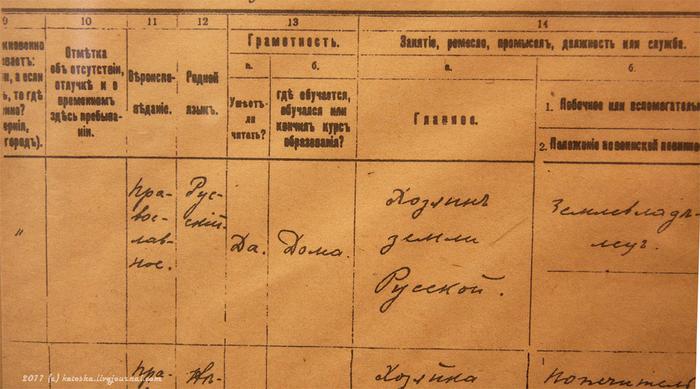 9 10 11 12 13 14
Отмѣтка
объ отсутствіи,
отлучкѣ и о
временномъ
здѣсь пребыва-
ніи.
Вѣроиспо-
вѣданіе.
Родной
языкъ.
Грамотность.
а.
Умѣетъ-
ли
читать?
б.
гдѣ обучается,
обучался или
кончилъ курсъ
образованія?
Занятіе, ремесло, промыселъ, должность или служба.
а.
Главное.
б.
1. Побочное или вспомогательн
2. Положеніе по воинской повинно
"
Пра-
вос-
лав-
ное.
Рус-
скій
Да.
Дома.
Хозяинъ
земли
Русской.
Землевладѣ-
лецъ.
Пра-
Хозяйка
попечител
2077 (c) katoska.livejournal.com